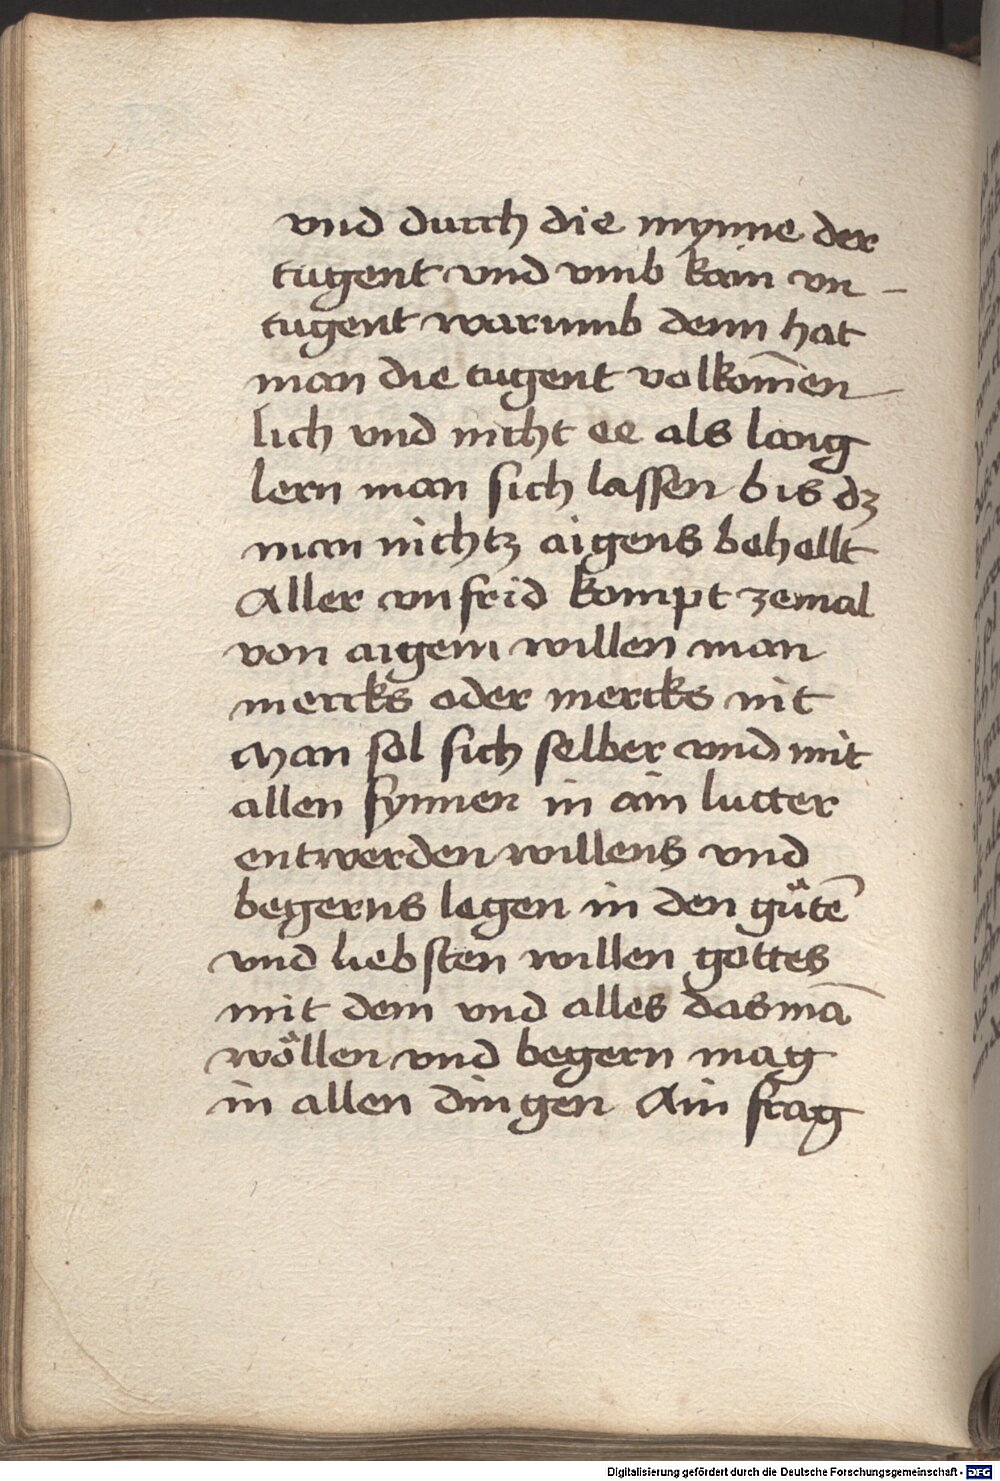 vnd durch die mynne der
tugent vnd vmb kain vn -
tugent warumb denn hat
man die tugent volkom̄en
lich vnd nicht ee als lang
lern man sich lassen bis dꝫ
man nichtꝫ aigens behellt
Aller vnfrid kompt zemal
von aigem willen man
mercks oder mercks nit
Man sol sich selber vnd mit
allen synnen in ain lutter
entwerden willens vnd
begerns legen in den gůtē
vnd liebsten willen gottes
mit dem vnd alles das mā
woͤllen vnd begern mag
in allen dingen Ain frag
Digitalisierung gefördert durch die Deutsche Forschungsgemeinschaft - DFG